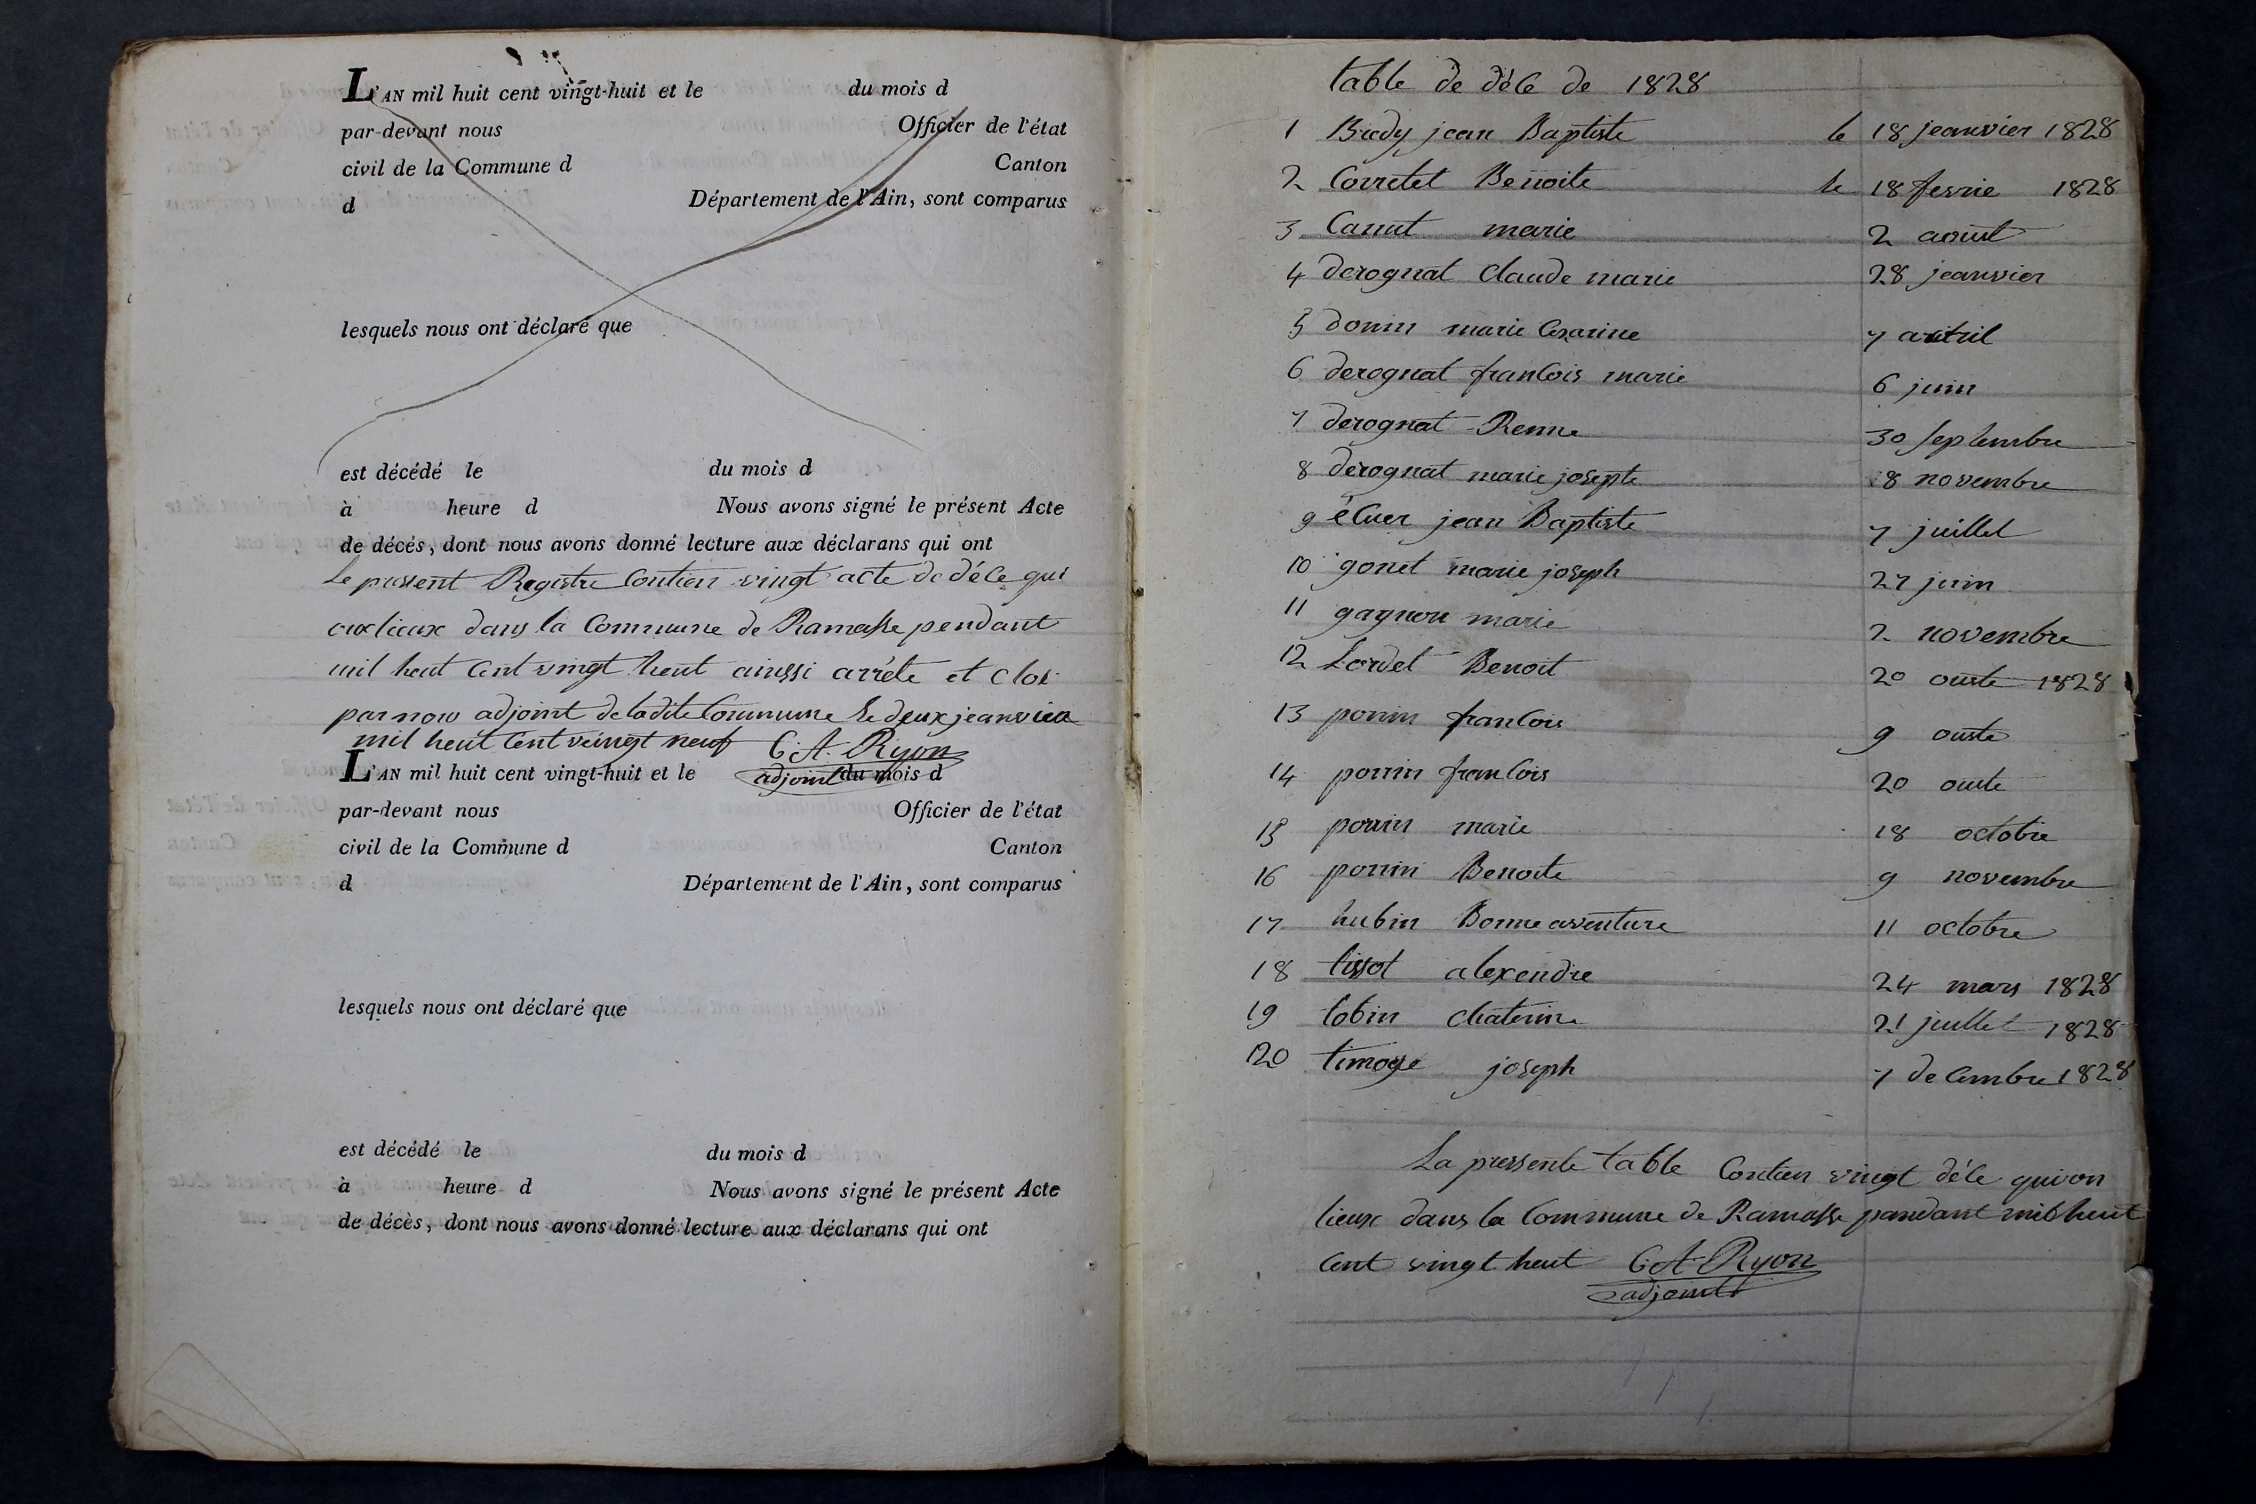 L'AN mil huit cent vingt-huit et le du mois d
par-devant nous Officier de l'état
civil de la Commune d Canton
d Département de l'Ain, sont comparus
lesquels nous ont déclaré que
est décédé le du mois d
à heure d Nous avons signé le présent Acte
de décès, dont nous avons donné lecture aux déclarans qui ont
Le pressent Registre Contien vingt acte de déce qui
dans la Commune de Ramasse pendant
mil heut Cent vingt heut ainssi arréte et clos
par nous adjoint de ladite Commune le deux jeanvier
mil heut Cent veingt neuf C. A. Ryon
adjoint
L'AN mil huit cent vingt-huit et le du mois d
par-devant nous Officier de l'état
civil de la Commune d Canton
d Département de l'Ain, sont comparus
lesquels nous ont déclaré que
est décédé le du mois d
à heure d Nous avons signé le présent Acte
de décès, dont nous avons donné lecture aux déclarans qui ont
table de déce de 1828
1 jean Baptiste le 18 jeanvier 1828
2 Corretet Benoite le 18 fevrie 1828
3 Canut marie 2 aoust
4 derognat Claude marie 28 jeanvier
5 donin marie Cesarine 7 avril
6 derognat franCois marie 6 juin
7 derognat Renne 30 septembre
8 derognat marie josepte 8 novembre
9 jean Baptiste 7 juillet
10 gonet marie joseph 27 juin
11 gagnon marie 2 novembre
12 Lordet Benoit 20 ouste 1828
13 ponin franCois 9 ouste
14 ponin franCois 20 ouste
15 ponin marie 18 octobre
16 ponin Benoite 9 novembre
17 hubin Bonne aventure 11 octobre
18 tissot alexendre 24 mars 1828
19 tobin Chaterine 21 juillet 1828
20 joseph 7 deCembre 1828
La pressente table Contien vingt déce qui on
lieux dans la Commune de Ramasse pandant mil heut
Cent vingt heut C. A. Ryon
adjoint